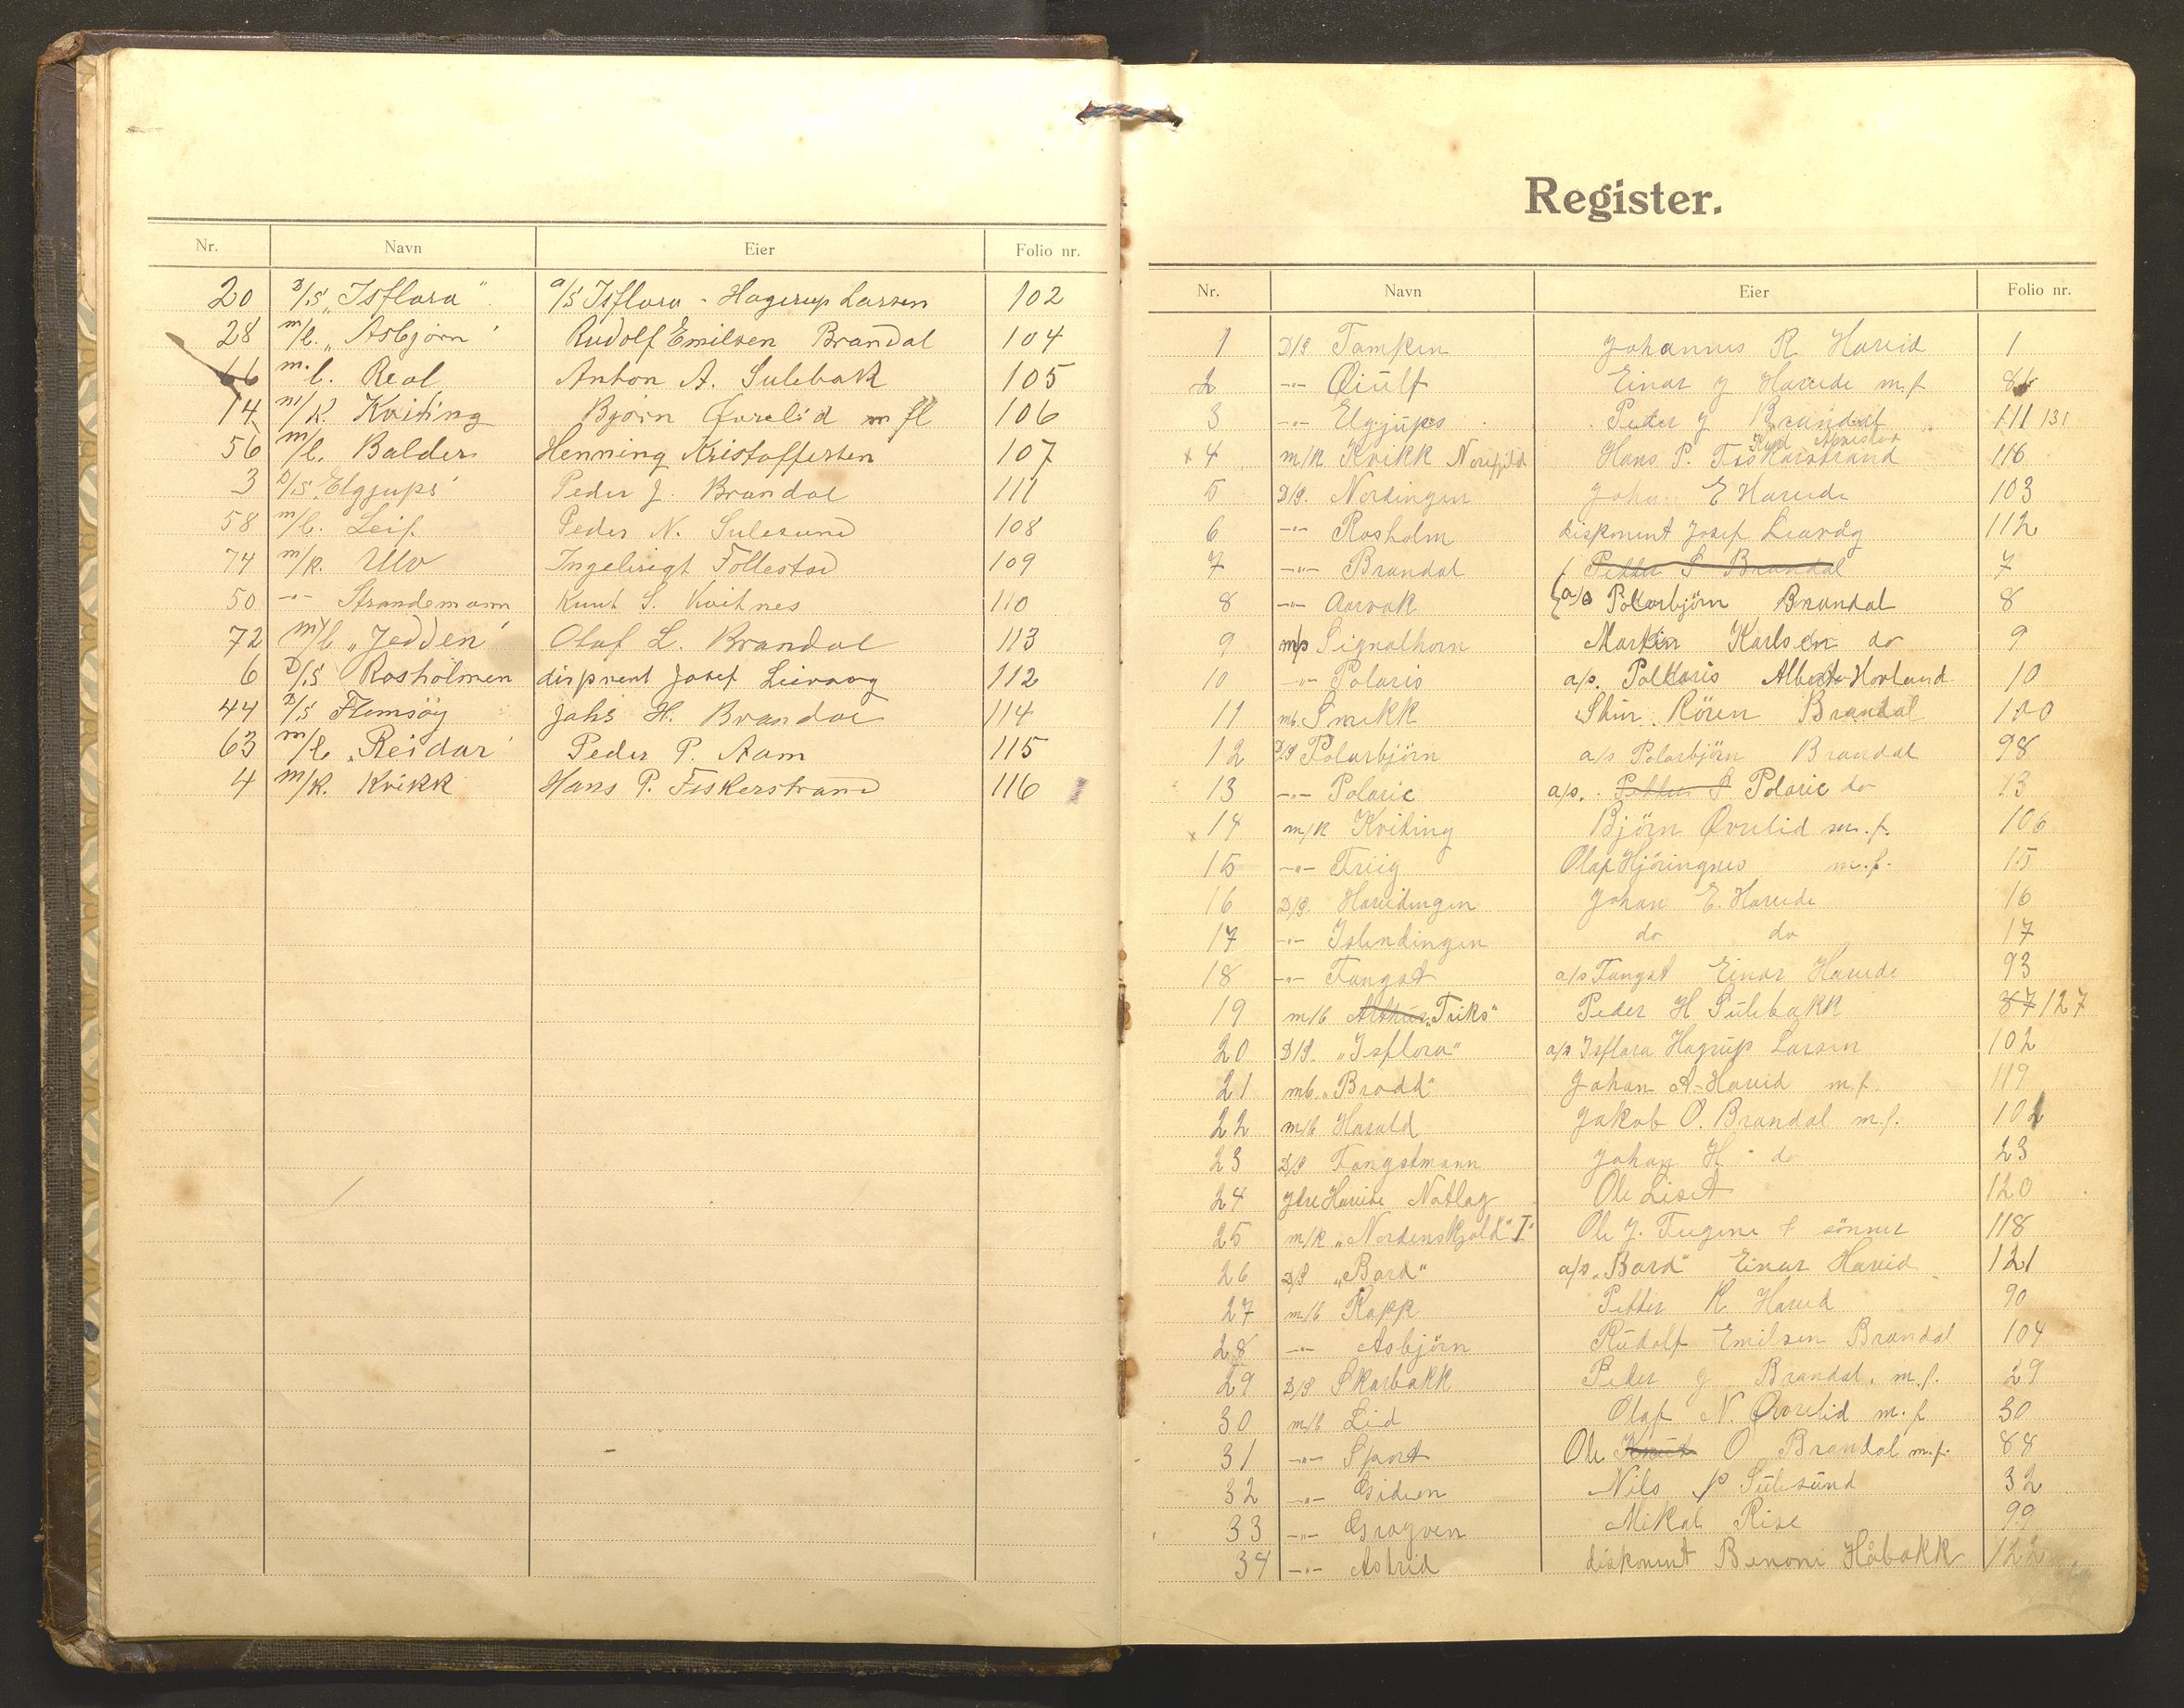 Nr. Navn Eier Folio nr.
20 D/S „Isflora" a/s Isflora - Hagerup Larsen 102
28 m/b. „Asbjørn" Rudolf Emilsen Brandal 104
66 m.b. Real Anton A. Sulebak 105
14 m/k. Kviting Bjørn Øvrelid m fl 106
56 m/b. Balder Henning Kristoffersen 107
3 D/S „Elgjups" Peder J. Brandal 111
58 m/b. Leif. Peder N. Sulesund 108
74 m/k. Ulv Ingebrigt Follestad 109
50 -"- Strandemann Knut S. Kvitnes 110
72 m/b „Jedden" Olaf L. Brandal 113
6 D/S Rosholmen disponent Josef Leivaag 112
44 D/S Flemsøy Johs H. Brandal 114
63 m/b „Reidar" Peder P. Aam 115
4 m/k. Kvikk Hans P. Fiskerstrand 116
Register.
Nr. Navn Eier Folio nr.
1 D/S Tampen Johannes R. Hareid 1
2 -"- Einar J Hareide m.f. 86
3 -"- Elgjups Peder J Brandal 111 131
x 4 m/k Kvikk Hans P. Fiskarstrand 116
5 D/S. Nordingen Johan E Hareide 103
6 -"- Rosholm disponent Josef Leavåg 112
7 -"- Brandal Petter S Brandal 7
8 -"- Aarvak a/s Polarbjörn Brandal 8
9 m/s Signalhorn Martin Karlsen do 9
10 -"- Polaris a/s. Polaris Hovland 10
11 mb. Snekk Rören Brandal 100
12 D/S Polarbjörn a/s Polarbjörn Brandal 98
13 -"- Polaric a/s. Petter S Polaric do 13
x 14 m/k Kviting Björn Øvrelid m.f. 106
15 -"- Trüg Olaf Hjöringnes m.f. 15
16 D/S. Hareidingen Johan E. Hareide 16
17 -"- Islendingen do do 17
18 -"- Fangst a/s Fangst Einar Hareide 93
19 m/b Arthur „Triks" Peder H Sulebakk 87 127
20 D/S. „Isflora" a/s Isflora Hagrup Larsen 102
21 mb. „Brodd" Johan A. Hareid m.f. 119
22 m/b Harald Jakob O. Brandal m.f. 102
23 D/S Fangstmann Johan H - do 23
24 Ytre Hareide Notlag Ole Liset 120
25 m/k „Nordenskjold" I" Ole J. & sönner 118
26 D/S „Bard" a/s „Bard" Einar Hareid 121
27 m/b Rapp Petter K Hareid 90
28 -"- Asbjörn Rudolf Emilsen Brandal 104
29 D/S Skarbakk Peder J Brandal. m.f. 29
30 m/b Lid Olaf N. Øvrelid m.f 30
31 -"- Sport Ole Knut O Brandal m.f. 88
32 -"- Gideon Nils P Sulesund 32
33 -"- Gragven Mikal Rise 99
34 -"- Astrid disponent Benoni Håbakk 122